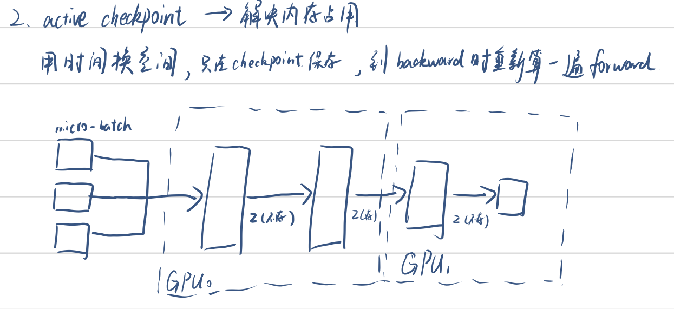 2. active checkpoint → 解决内存占用
用时间换空间，只在checkpoint保存，到backward时重新算一遍forward
micro-batch
Z(不存) Z(存) Z(不存)
GPU₀ GPU₁